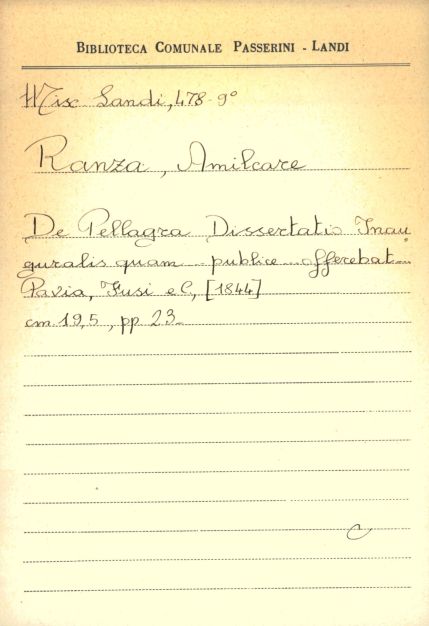 BIBLIOTECA COMUNALE PASSERINI - LANDI
Misc Landi, 478-9°
Ranza, Amilcare
De Pellagra Dissertatio Inau
guralis quam ... publice ... offerebat...
Pavia, Fusi e C, [1844]
cm. 19,5, pp. 23.
C